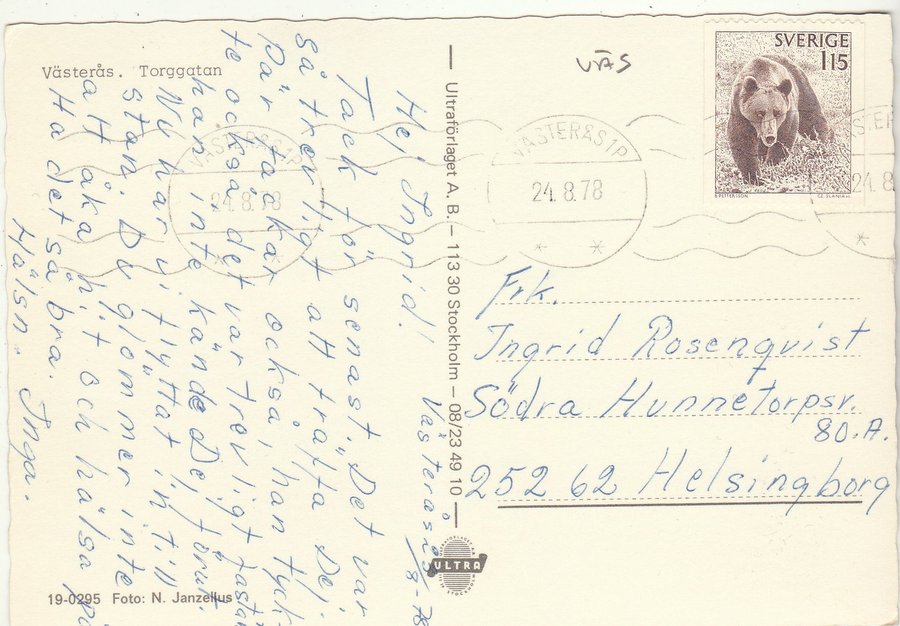 Västerås. Torggatan
Västerås 23/8-78
Hej Ingrid!
Tack för senast. Det var
så trevligt att träffa Dej.
Pär tänkar också, han tyck-
te också det var trevligt fastän
han inte kände Dej förut.
Nu har vi flyttat in till
stan. Du glömmer inte
att åka hit och hälsa på
Ha det så bra.
Hälsn. Inga.
Ultraförlaget A.B. – 113 30 Stockholm – 08/23 49 10
ULTRA
19-0295 Foto: N. Janzelius
VÄS
SVERIGE
115
B PETTERSSON CZ. SLANIA
VÄSTERÅS 1P
24.8.78
VÄSTERÅS 1P
24.8.78
24.8
Frk.
Ingrid Rosenquist
Södra Hunnetorpsv.
80.A.
252 62 Helsingborg